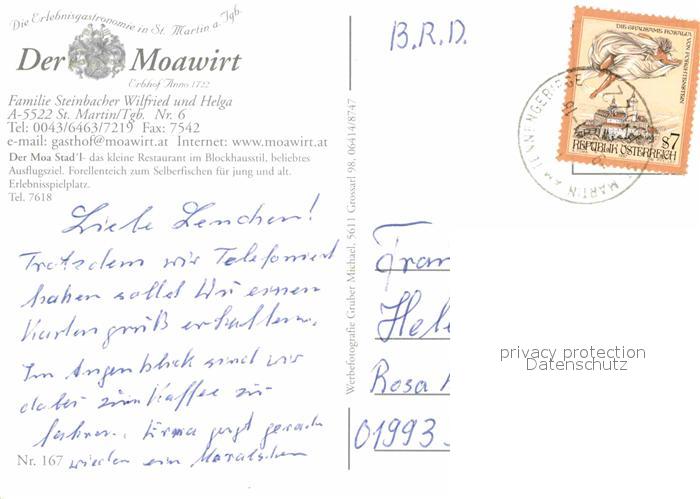 Die Erlebnisgastronomie in St. Martin a. Tgb.
Der Moawirt
Erbhof Anno 1722
Familie Steinbacher Wilfried und Helga
A-5522 St. Martin/Tgb. Nr. 6
Tel: 0043/6463/7219 Fax: 7542
e-mail: gasthof@moawirt.at Internet: www.moawirt.at
Der Moa Stad'l- das kleine Restaurant im Blockhausstil, beliebtes
Ausflugsziel. Forellenteich zum Selberfischen für jung und alt.
Erlebnisspielplatz.
Tel. 7618
Liebe Lenchen!
Trotzdem wir Telefoniert
haben sollst Du einen
Kartengruß erhalten.
Im Augenblick sind wir
dabei zum Kaffee zu
fahren. Erma
Nr. 167 wieder ein
Werbefotografie Gruber Michael, 5611 Grossarl 98, 06414/8747
B.R.D.
DIE GRAUSAME ROSALIA
VON FORCHTENSTEIN
$7
REPUBLIK ÖSTERREICH
MARTIN AM TENNENGEBIRGE
Fran
Hel
Rosa
01993
privacy protection
Datenschutz